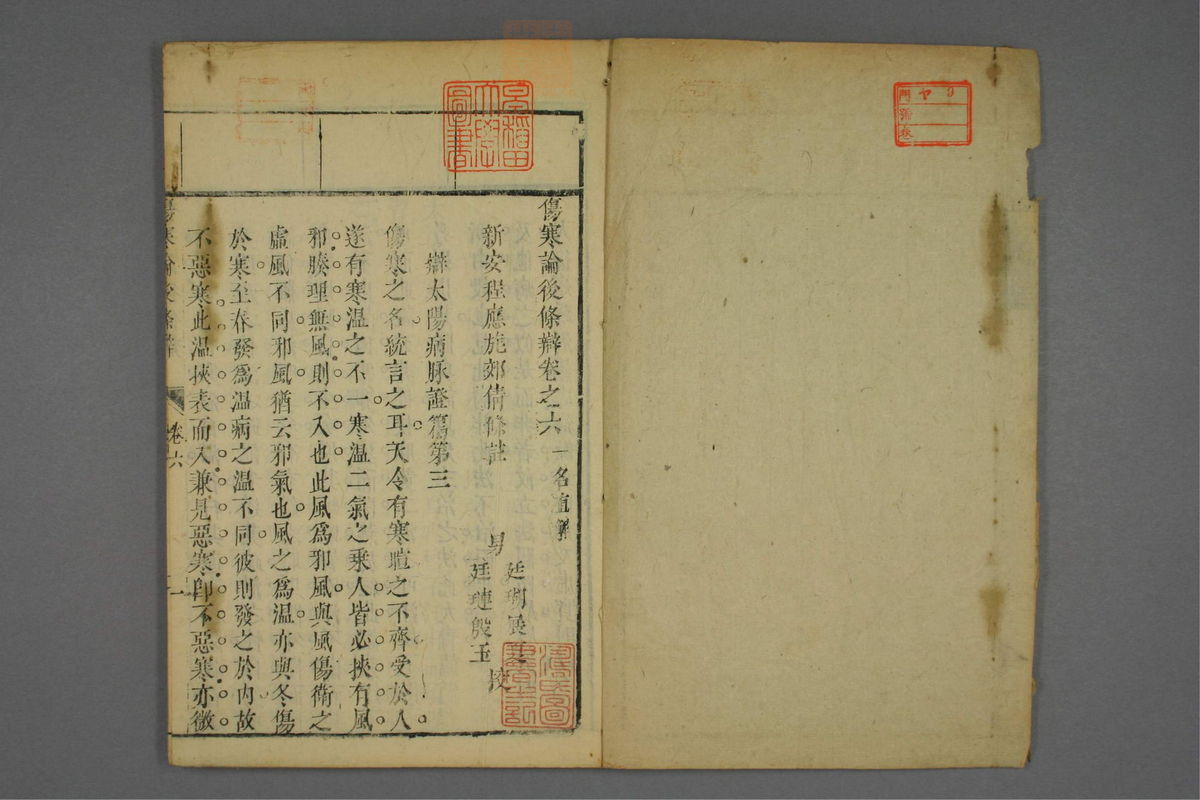 傷寒論後條辯卷之六 一名直解
新安程應旄郊倩條註
男 廷
廷璉殷玉
校
辯太陽病脉證篇第三
傷寒之名統言之耳天令有寒暄之不齊受於人
遂有寒温之不一寒温二氣之乘人皆必挾有風
邪腠理無風則不入也此風爲邪風與風傷衛之
虛風不同邪風猶云邪氣也風之爲温亦與冬傷
於寒至春發爲温病之温不同彼則發之於内故
不惡寒此温挾表而入兼見惡寒卽不惡寒亦微
傷寒論後條辯 卷六 一
早稲田大學圖書
門 號 卷